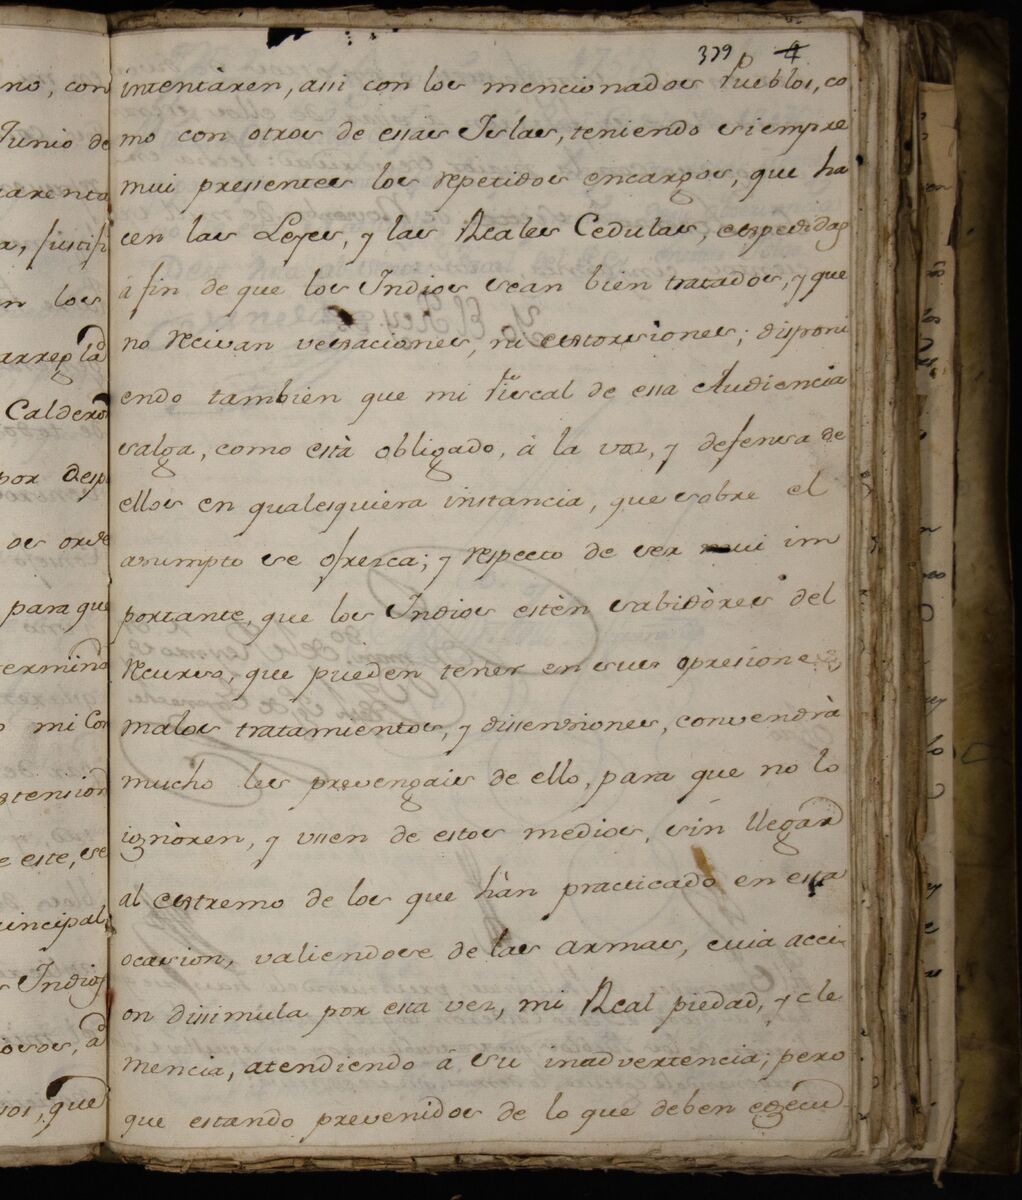 no, con
Junio de
arento
a, justifi
n los
arreglad
Caldero
por desp
os orde
para que
termino
o mi Con
stension
e este, se
incipal
s Indios
osos, a
sos, que
379 4
intentàren, assi con los mencionados Pueblos, co
mo con otros de essas Islas, teniendo siempre
mui pressentes los repetidos encargos, que ha
cen las Leyes, y las Reales Cedulas, expedidas
á fin de que los Indios sean bien tratados, y que
no recivan vexaciones, ni extorsiones; disponi
endo tambien que mi Fiscal de essa Audiencia
salga, como està obligado, à la voz, y defensa de
ellos en qualesquiera instancia, que sobre el
asumpto se ofrezca; y respecto de ser mui im
portante, que los Indios estèn sabidòres del
recurso, que pueden tener en sus opresiones,
malos tratamientos, y dissensiones, convendrà
mucho les prevengais de ello, para que no lo
ignòren, y ussen de estos medios, sin llegar
al extremo de los que hàn practicado en essa
ocasion, valiendose de las armas, cuia acci
on dissimùla por esta vez, mi Real piedad, y cle
mencia, atendiendo à su inadvertencia; pero
que estando prevenidos de lo que deben egecu